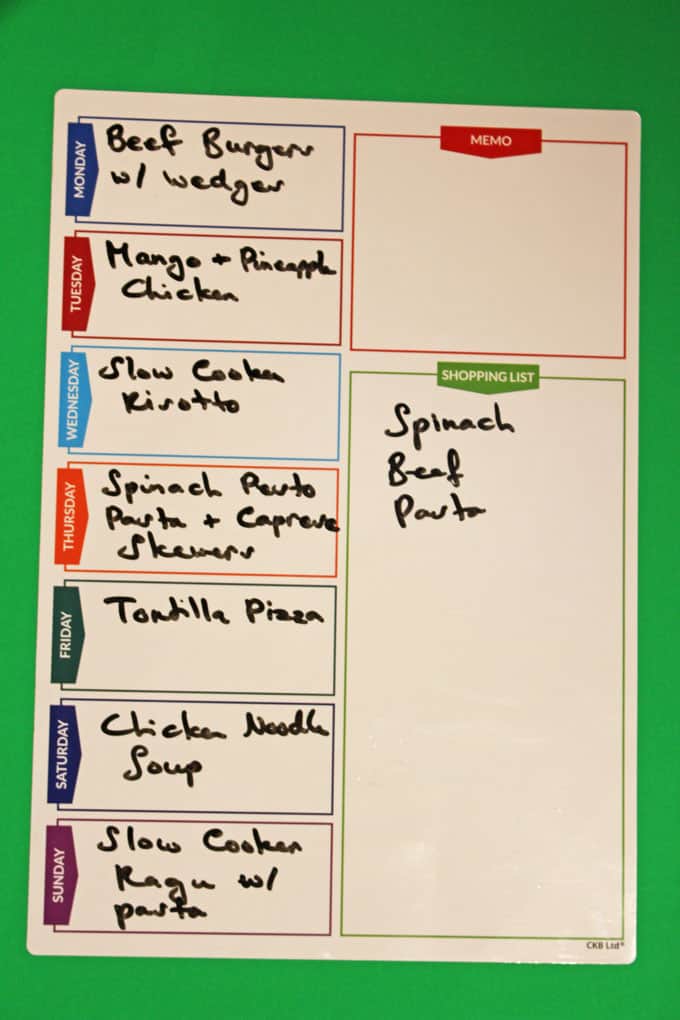 MONDAY
Beef Burgers
w/ wedges
TUESDAY
Mango + Pineapple
Chicken
WEDNESDAY
Slow Cooker
Risotto
THURSDAY
Spinach Pesto
Pasta + Caprese
Skewers
FRIDAY
Tortilla Pizza
SATURDAY
Chicken Noodle
Soup
SUNDAY
Slow Cooker
Ragu w/
pasta
MEMO
SHOPPING LIST
Spinach
Beef
Pasta
CKB Ltd®